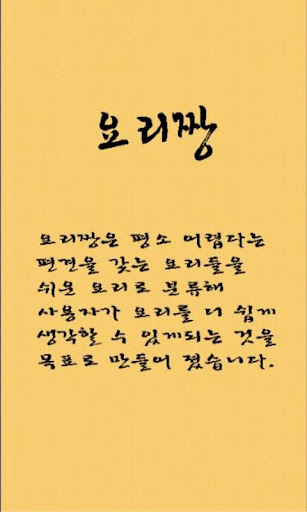 요리짱
요리짱은 평소 어렵다는
편견을 갖는 요리들을
쉬운 요리로 분류해
사용자가 요리를 더 쉽게
생각할 수 있게되는 것을
목표로 만들어 졌습니다.